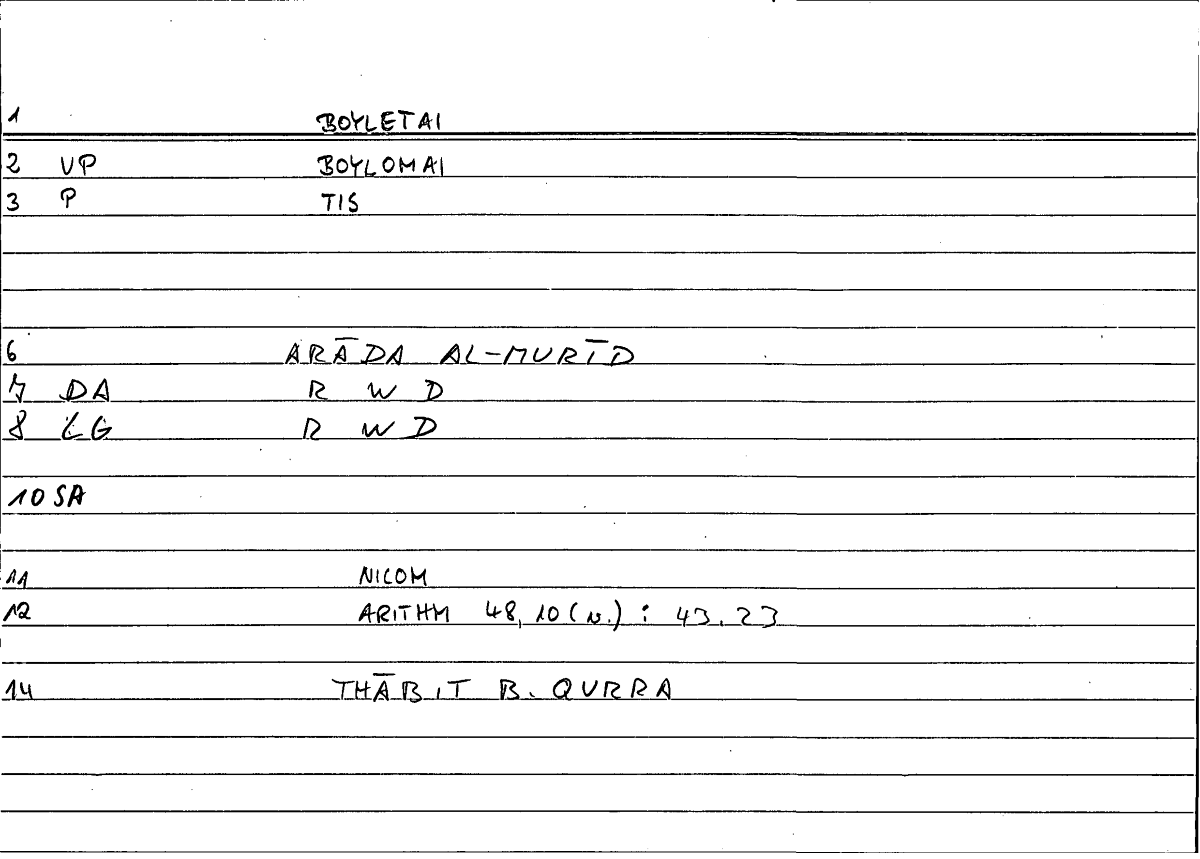 1 BOYLETAI
2 VP BOYLOMAI
3 P TIS
6 ARĀDA AL-MURĪD
7 DA R W D
8 LG R W D
10 SA
11 NICOM
12 ARITHM 48,10 (n.) : 43.23
14 THĀBIT B. QURRA